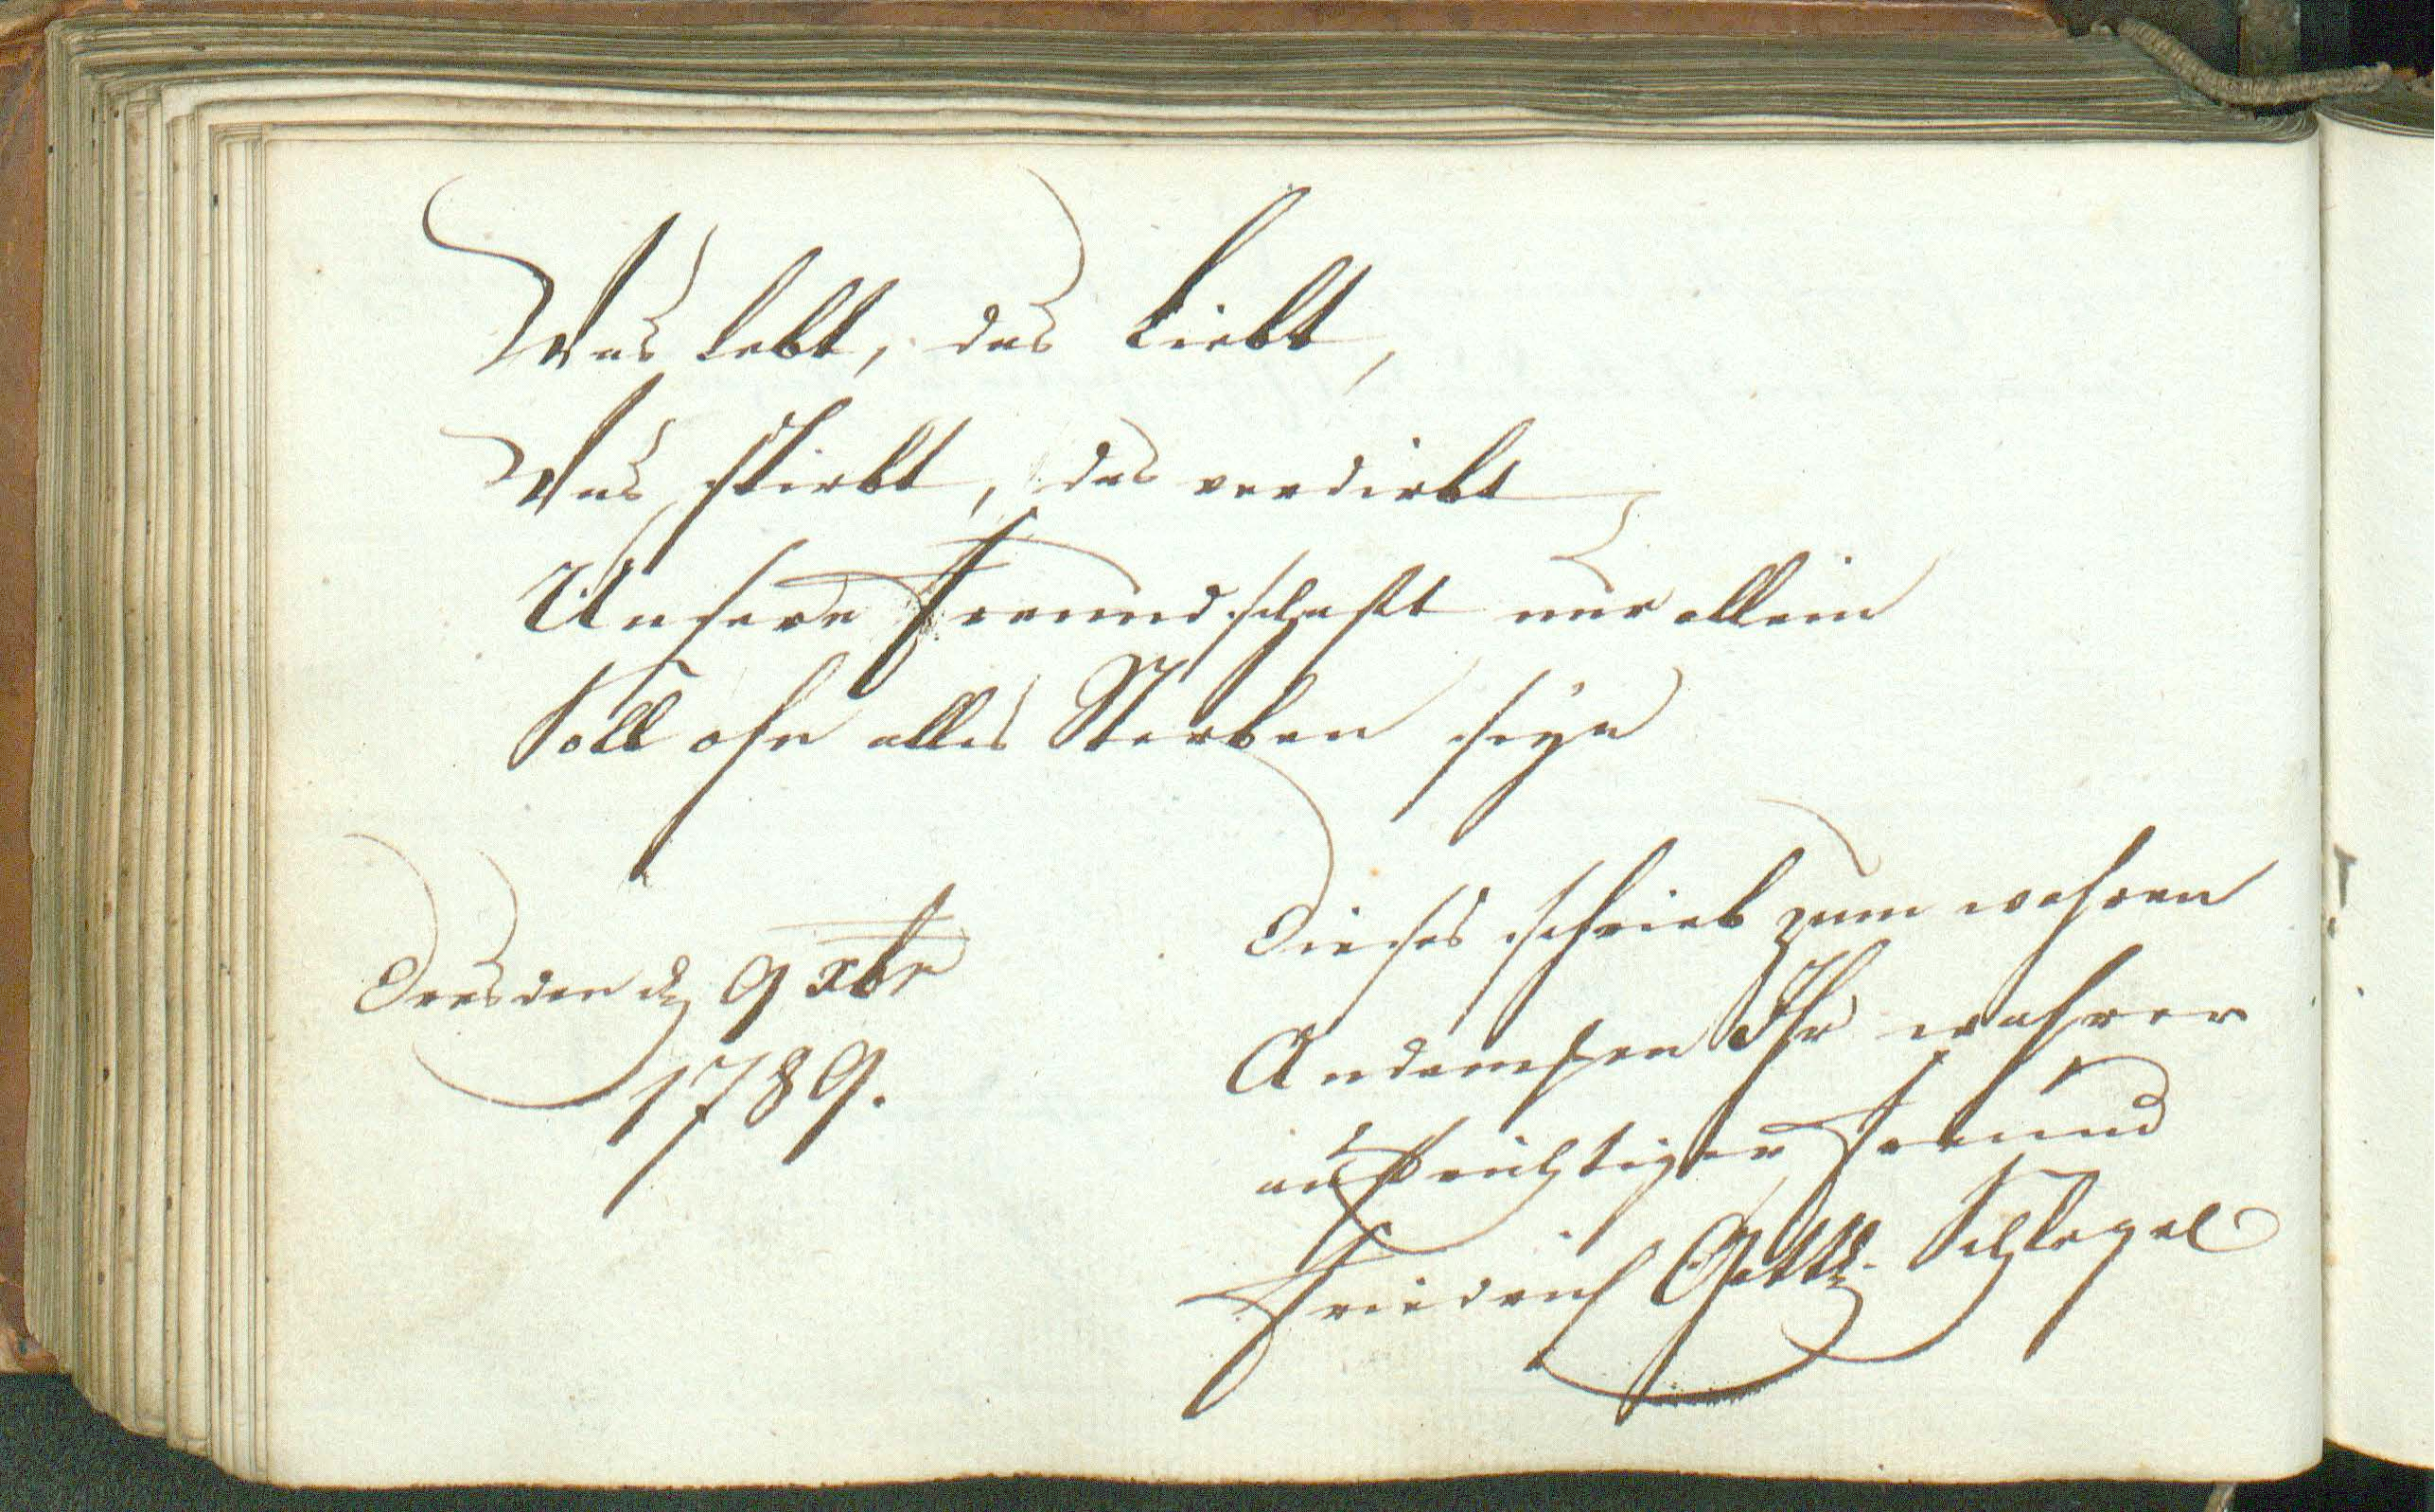 Was lebt, das liebt,
Was stirbt, das verdirbt
Unsere Freundschaft nur allein
Soll ohn alles Sterben seyn
Dresden d. 9 xbr
1789.
Dieses schrieb zum wahren
Andencken Ihr wahrer
aufrichtiger Freund
Friedrich Gottl. Schlegel